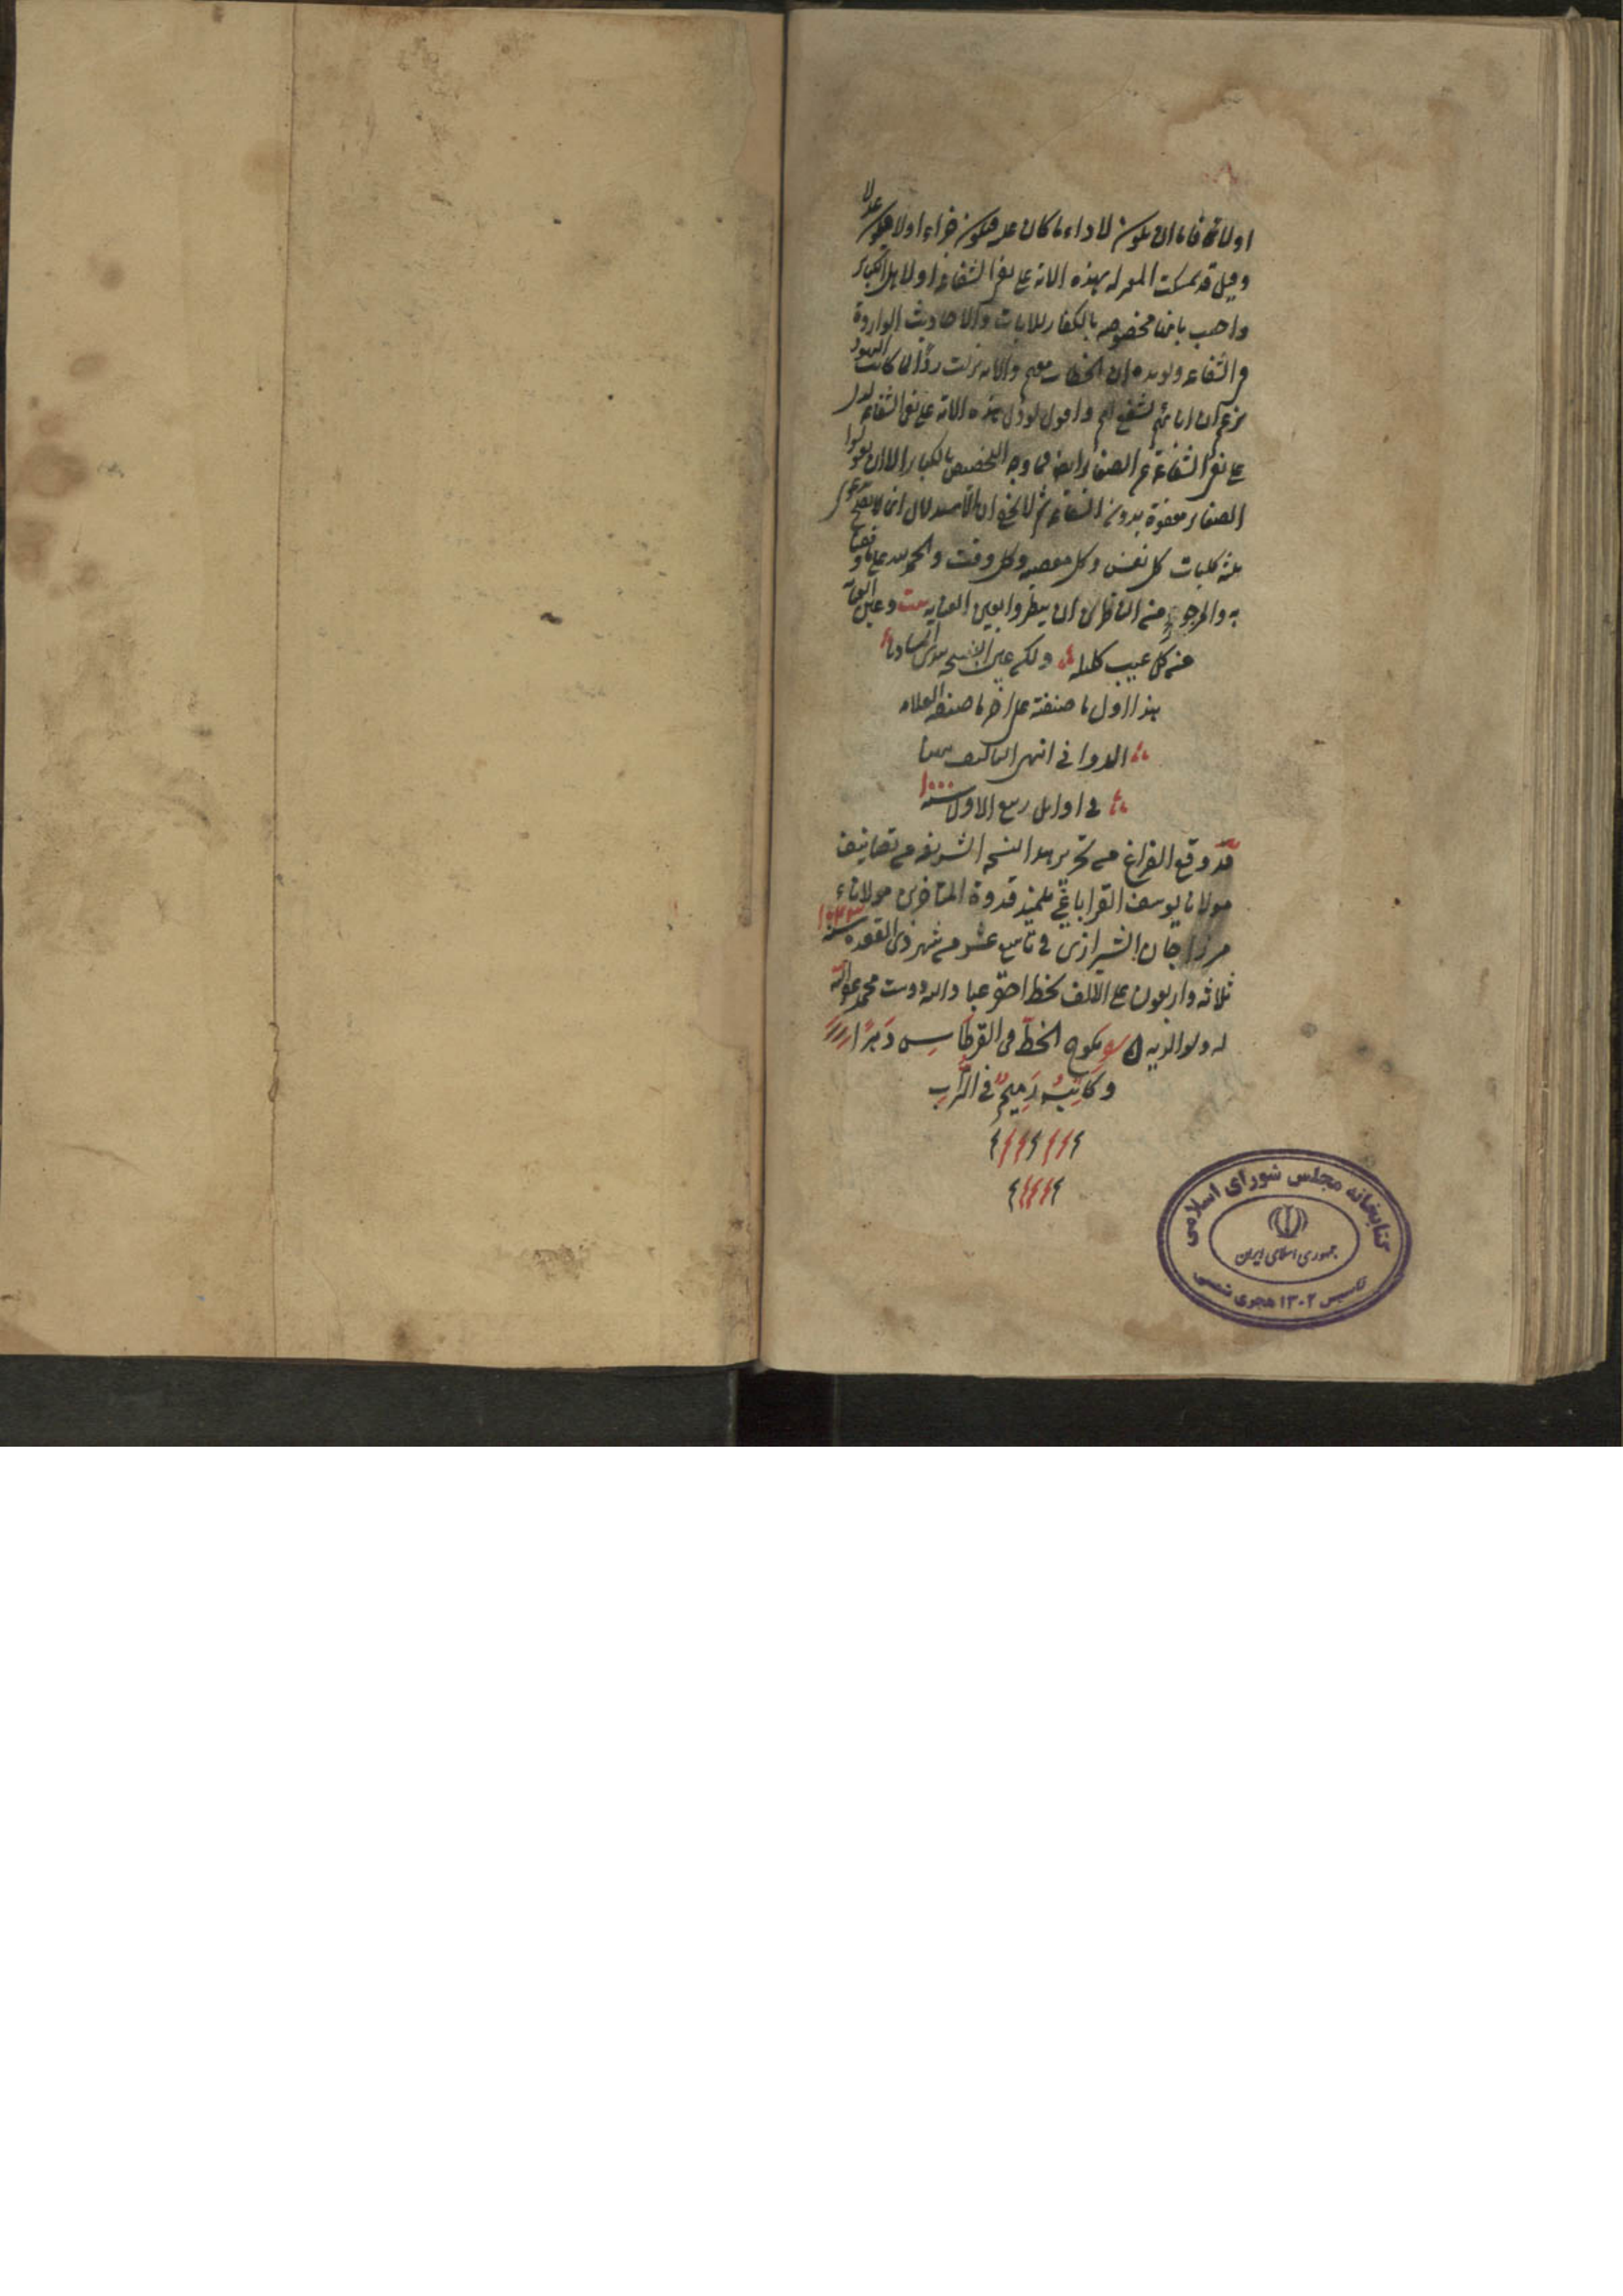 اولا فاما ان يكون لاداء ما كان عليه فيكون جزاء اولا فيكون عدلا
وقيل قد تمسكت المعتزلة بهذه الاية على نفى الشفاعة لاهل الكباير
واجيب بانها مخصوصة بالكفار للايات والاحاديث الواردة
فى الشفاعة ويؤيده ان الخطاب معهم والاية نزلت ردّا لما كانت اليهود
تزعم ان اباءهم تشفع لهم واقول لو دل هذه الاية على نفى الشفاعة لدل
على نفى الشفاعة عن الصغاير ايضا فما وجه التخصيص بالكباير الا ان يقولوا
الصغاير معفوة بدون الشفاعة ثم لا يخفى ان الاستدلال
كليات كل نفس وكل معصية وكل وقت والحمد لله على
به والمرجو من الناظرين ان ينظروا بعين العناية بيت وعين
عن كل عيب كليلة ولكن عين السخط تبدى المساويا
هذا اول ما صنفته على اخر ما صنفه العلامة
الدوانى انتهى التاليف
فى اوايل ربيع الاول سنة ١٠٠٠
قد وقع الفراغ من تحرير هذا النسخة الشريفة من تصانيف
مولانا يوسف القراباغى تلميذ قدوة المتاخرين مولاناء
مرزا جان الشيرازى فى تاسع عشر من شهر ذى القعدة سنة ١٠٤٣
ثلاثة واربعون على الالف بخط احقر عباد الله دوست محمد عفى الله
له ولوالديه يلوح الخط فى القرطاس دهرا
وكاتبه رميم فى التراب
كتابخانه مجلس شورای اسلامی
جمهوری اسلامی ایران
تاسیس ۱۳۰۲ هجری شمسی